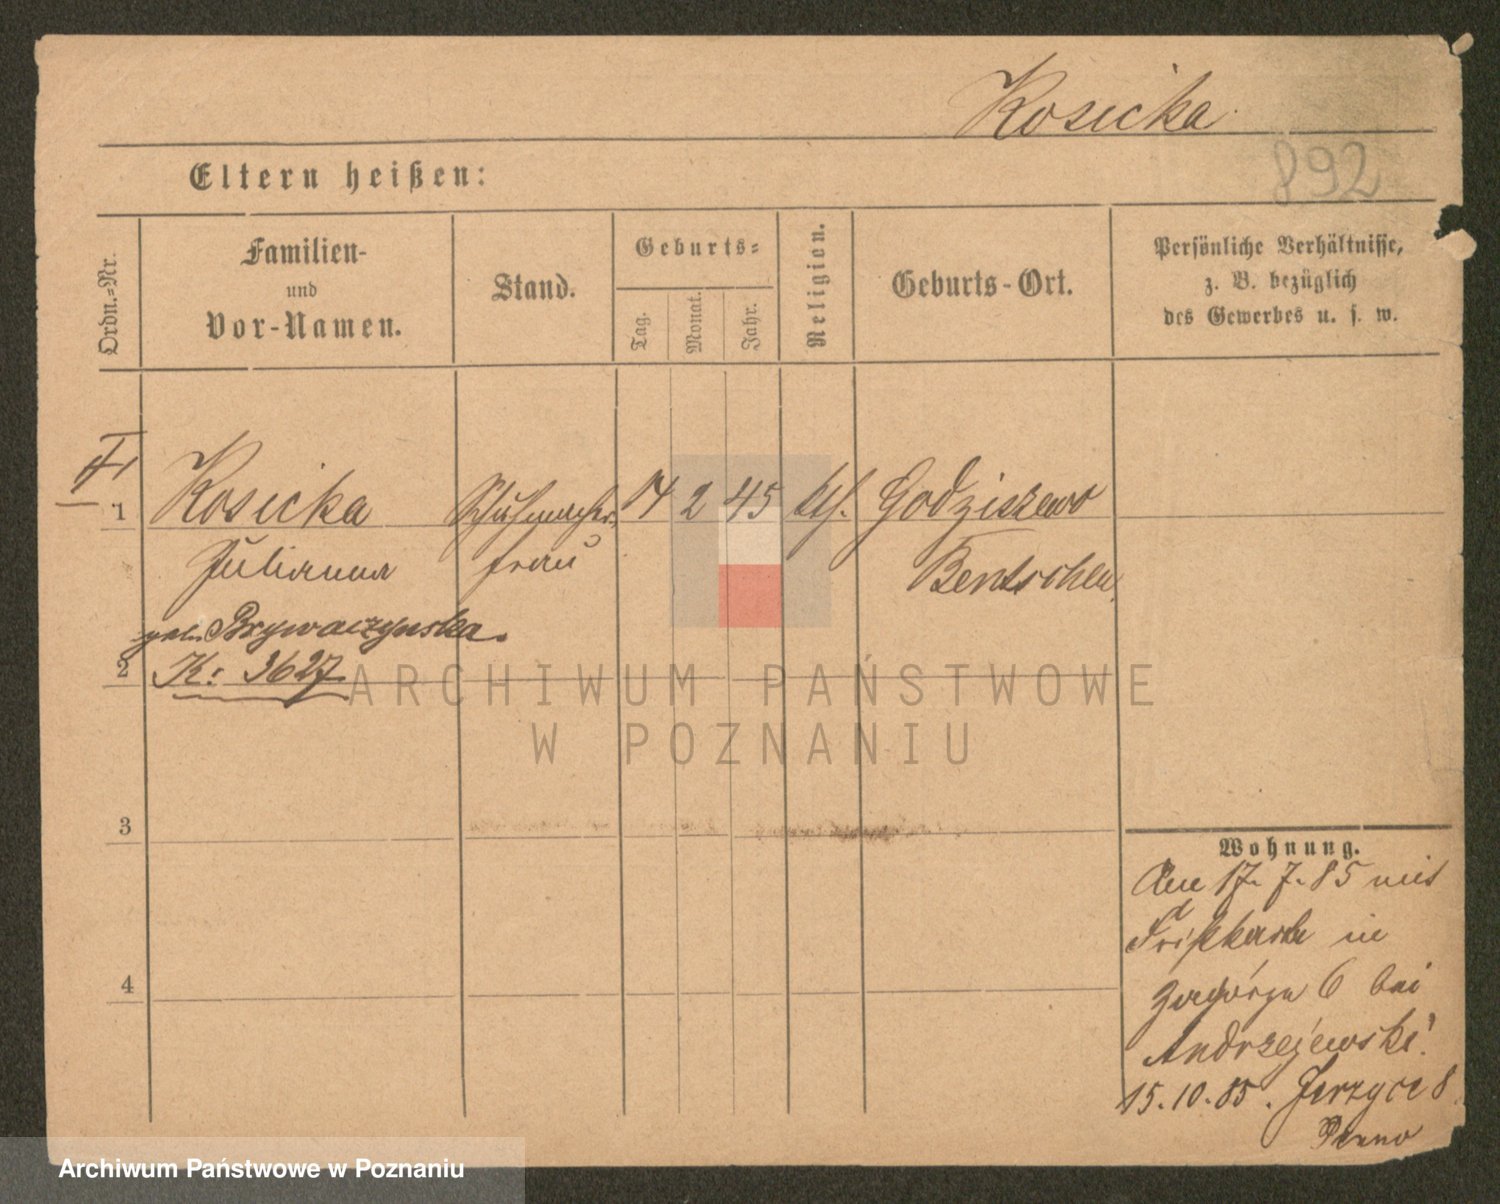 Kosicka
892
Eltern heißen:
Ordn.-Nr.
Familien-
und
Vor-Namen.
Stand.
Geburts-
Tag.
Monat.
Jahr.
Religion.
Geburts-Ort.
Persönliche Verhältnisse,
z. B. bezüglich
des Gewerbes u. s. w.
1 Kosicka Schuhmacher 14 2 45 kth. Godziszewo
Julianna frau Bentschen
geb. Brywaczynska.
2 K: 3627
ARCHIWUM PAŃSTWOWE
W POZNANIU
3
4
Wohnung.
Am 17. 7. 85 mit
in
Zagórze 6 bei
Andrzejewski.
15. 10. 85. Jerzyce 8
Archiwum Państwowe w Poznaniu